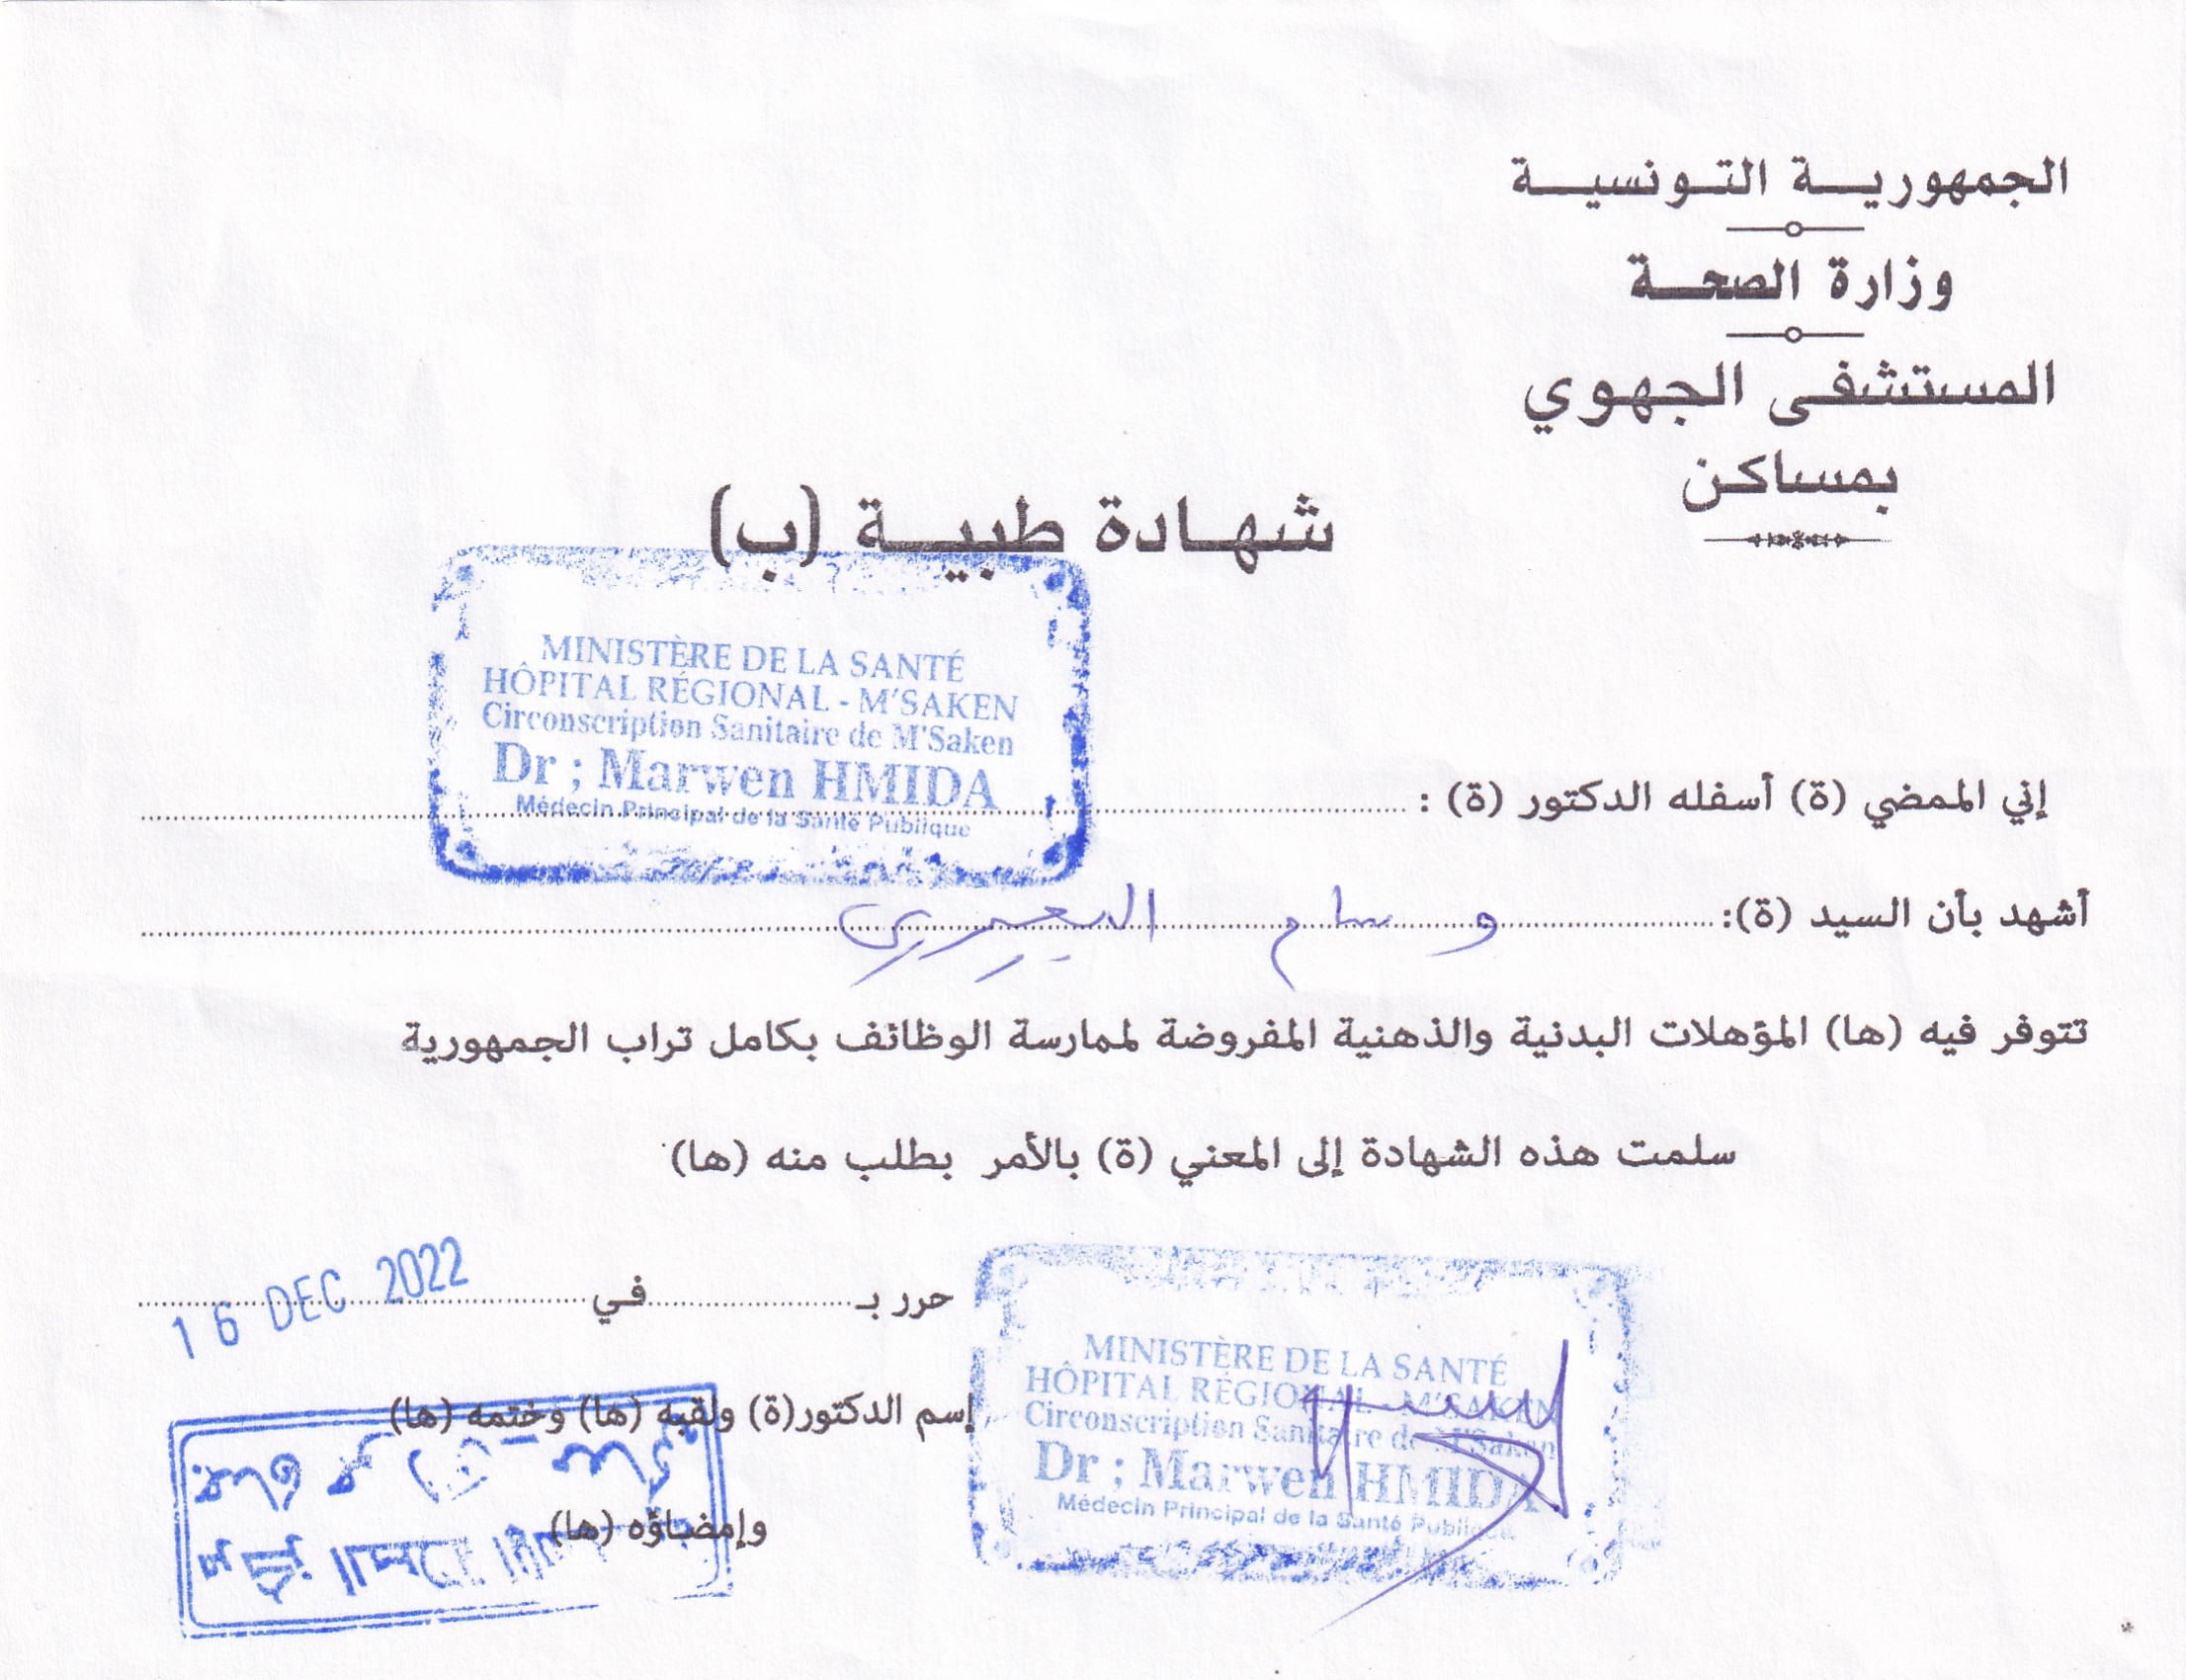 الجمهورية التونسية
وزارة الصحة
المستشفى الجهوي
بمساكن
شهادة طبية (ب)
MINISTÈRE DE LA SANTÉ
HÔPITAL RÉGIONAL - M'SAKEN
Circonscription Sanitaire de M'Saken
Dr ; Marwen HMIDA
Médecin Principal de la Santé Publique
إني الممضي (ة) أسفله الدكتور (ة) :
أشهد بأن السيد (ة): وسام
تتوفر فيه (ها) المؤهلات البدنية والذهنية المفروضة لممارسة الوظائف بكامل تراب الجمهورية
سلمت هذه الشهادة إلى المعني (ة) بالأمر بطلب منه (ها)
حرر بـ في 16 DEC 2022
إسم الدكتور(ة) ولقبه (ها) وختمه (ها)
وإمضاؤه (ها)
MINISTÈRE DE LA SANTÉ
HÔPITAL RÉGIONAL - M'SAKEN
Circonscription Sanitaire de M'Saken
Dr ; Marwen HMIDA
Médecin Principal de la Santé Publique